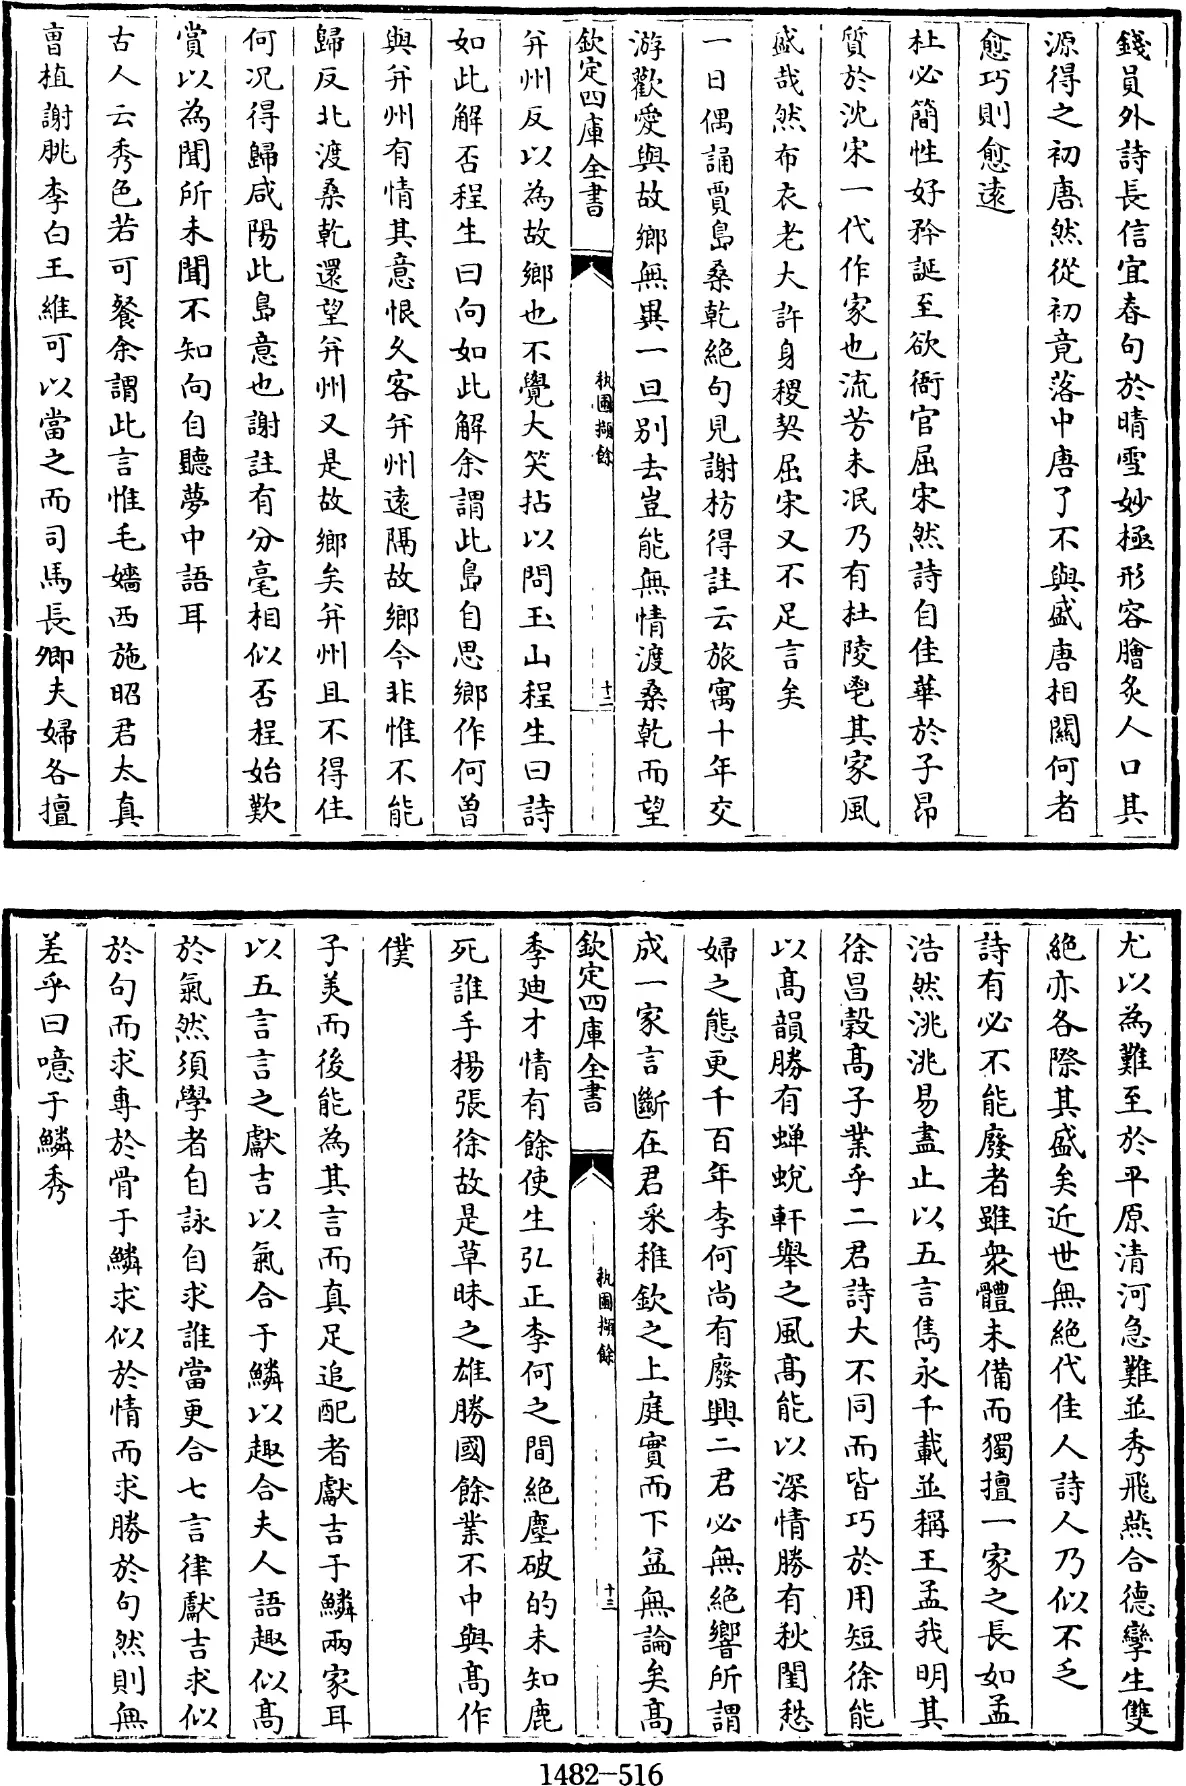 錢員外詩長信宜春句於晴雪妙極形容膾炙人口其
源得之初唐然從初竟落中唐了不與盛唐相關何者
愈巧則愈遠
杜必簡性好矜誕至欲衙官屈宋然詩自佳華於子昂
質於沈宋一代作家也流芳未泯乃有杜陵鬯其家風
盛哉然布衣老大許身稷契屈宋又不足言矣
一日偶誦賈島桑乾絕句見謝枋得註云旅寓十年交
游歡愛與故鄉無異一旦别去豈能無情渡桑乾而望
欽定四庫全書
秇圃擷餘
十二
幷州反以為故鄉也不覺大笑拈以問玉山程生曰詩
如此解否程生曰向如此解余謂此島自思鄉作何曽
與幷州有情其意恨久客幷州遠隔故鄉今非惟不能
歸反北渡桑乾還望幷州又是故鄉矣幷州且不得住
何况得歸咸陽此島意也謝註有分毫相似否程始歎
賞以為聞所未聞不知向自聽夢中語耳
古人云秀色若可餐余謂此言惟毛嬙西施昭君太真
曺植謝朓李白王維可以當之而司馬長卿夫婦各擅
尤以為難至於平原清河急難並秀飛燕合德孿生雙
絕亦各際其盛矣近世無絕代佳人詩人乃似不乏
詩有必不能廢者雖衆體未備而獨擅一家之長如孟
浩然洮洮易盡止以五言雋永千載並稱王孟我明其
徐昌榖髙子業乎二君詩大不同而皆巧於用短徐能
以髙韻勝有蟬蛻軒舉之風髙能以深情勝有秋閨愁
婦之態更千百年李何尚有廢興二君必無絕響所謂
成一家言斷在君采稚欽之上庭實而下益無論矣髙
欽定四庫全書
秇圃擷餘
十三
季廸才情有餘使生弘正李何之間絕塵破的未知鹿
死誰手楊張徐故是草昧之雄勝國餘業不中與髙作
僕
子美而後能為其言而真足追配者獻吉于鱗兩家耳
以五言言之獻吉以氣合于鱗以趣合夫人語趣似髙
於氣然須學者自詠自求誰當更合七言律獻吉求似
於句而求專於骨于鱗求似於情而求勝於句然則無
差乎曰噫于鱗秀
1482-516